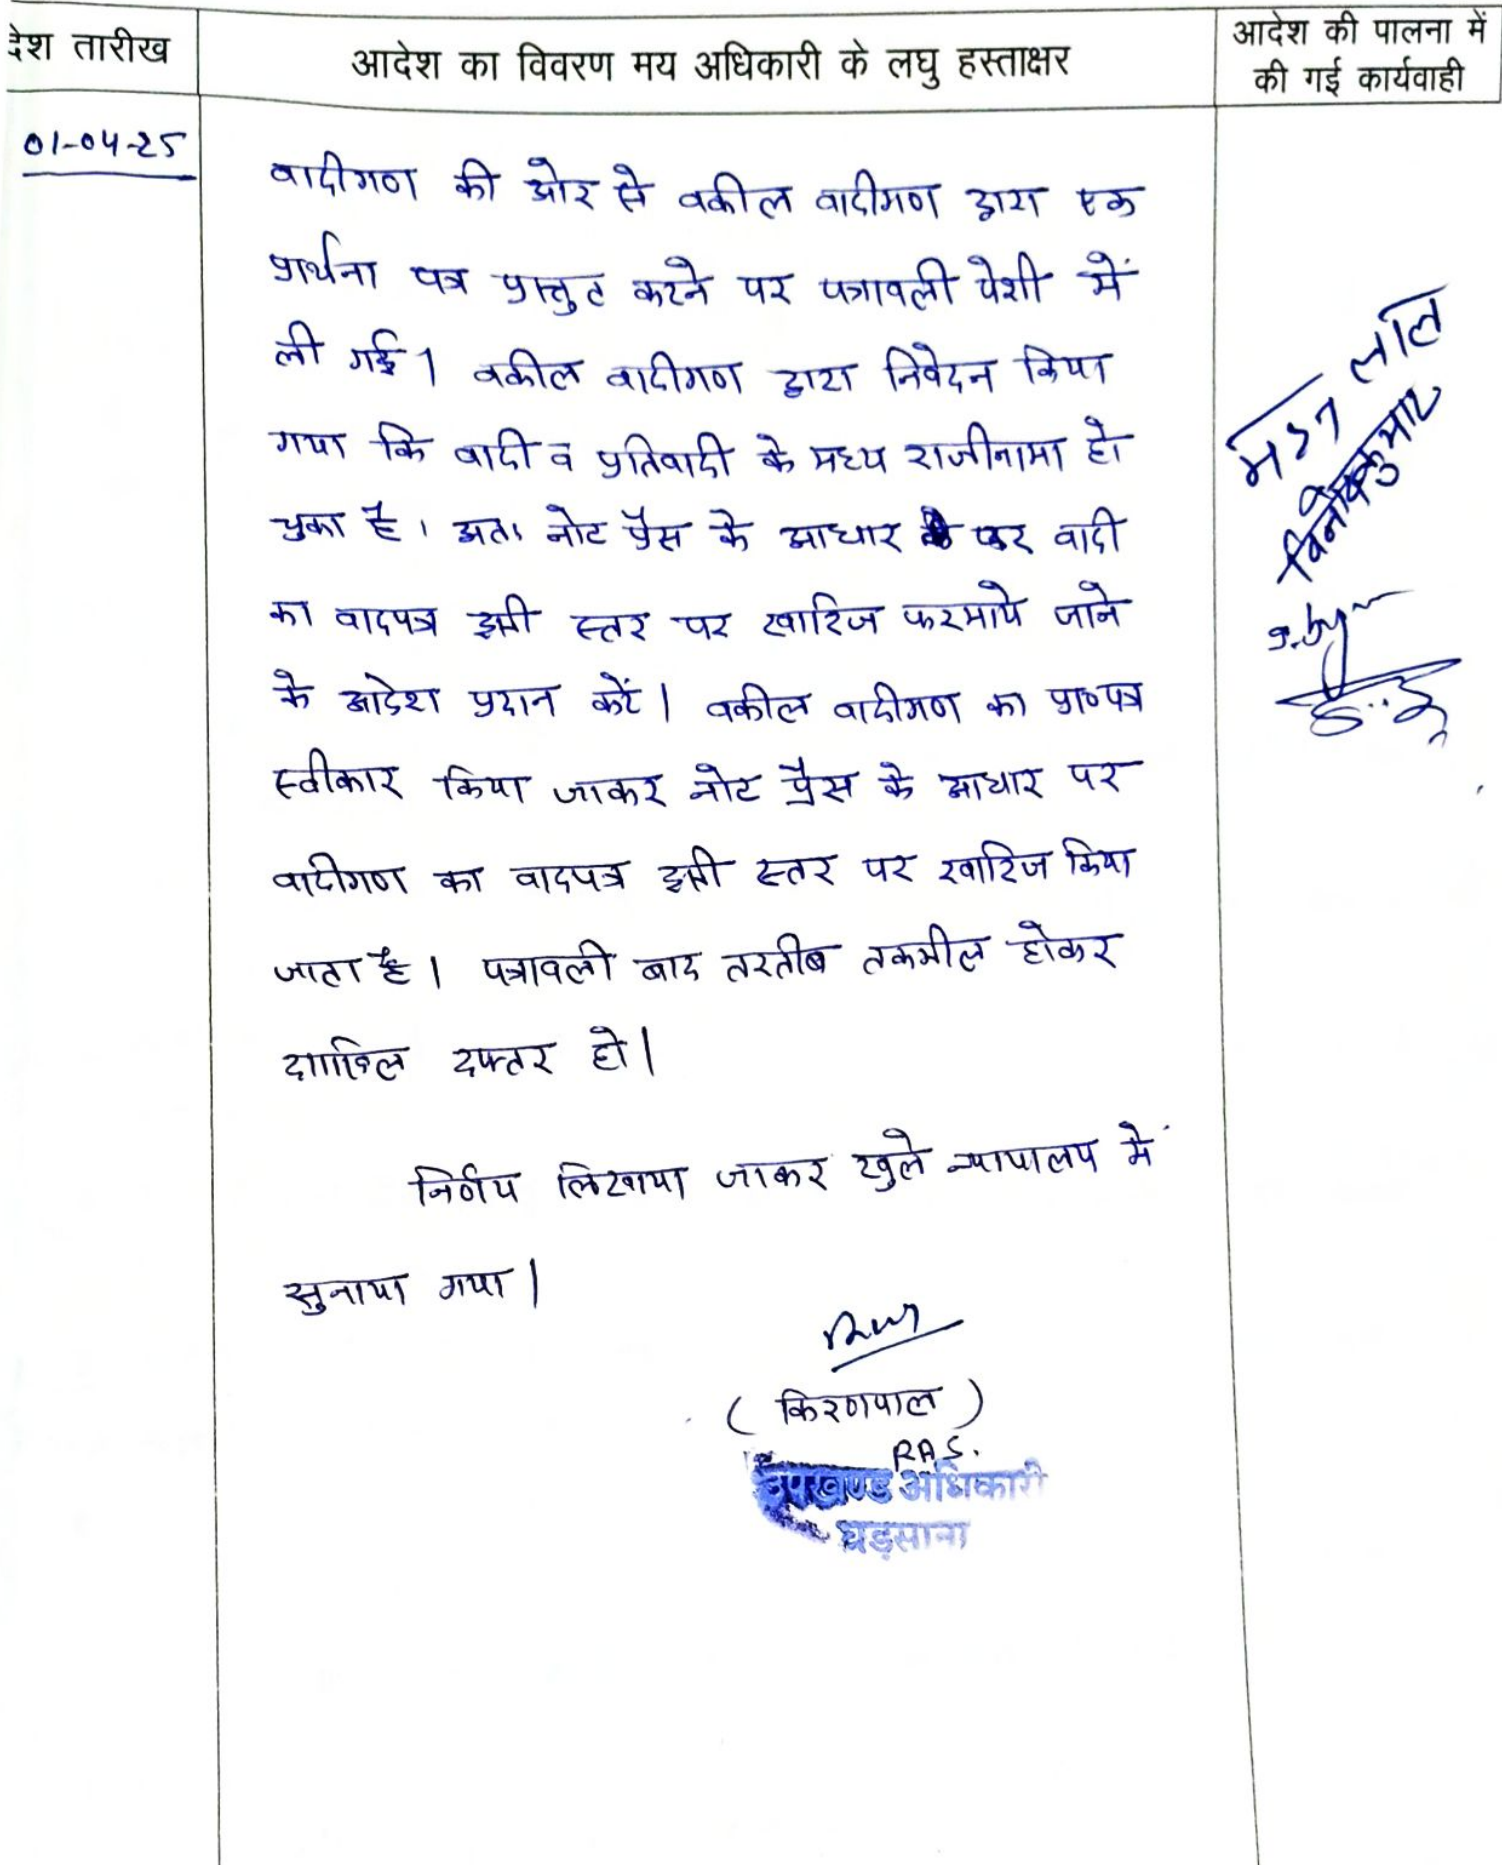 देश तारीख
आदेश का विवरण मय अधिकारी के लघु हस्ताक्षर
आदेश की पालना में
की गई कार्यवाही
01-04-25
वादीगण की ओर से वकील वादीगण द्वारा एक
प्रार्थना पत्र प्रस्तुत करने पर पत्रावली पेशी में
ली गई। वकील वादीगण द्वारा निवेदन किया
गया कि वादी व प्रतिवादी के मध्य राजीनामा हो
चुका है। अतः नोट प्रैस के आधार पर वादी
का वादपत्र इसी स्तर पर खारिज फरमाये जाने
के आदेश प्रदान करें। वकील वादीगण का प्रा०पत्र
स्वीकार किया जाकर नोट प्रैस के आधार पर
वादीगण का वादपत्र इसी स्तर पर खारिज किया
जाता है। पत्रावली बाद तरतीब तकमील होकर
दाखिल दफ्तर हो।
निर्णय लिखाया जाकर खुले न्यायालय में
सुनाया गया।
(किरणपाल)
RAS.
उपखण्ड अधिकारी
घड़साना
लाल
विनोद कुमार